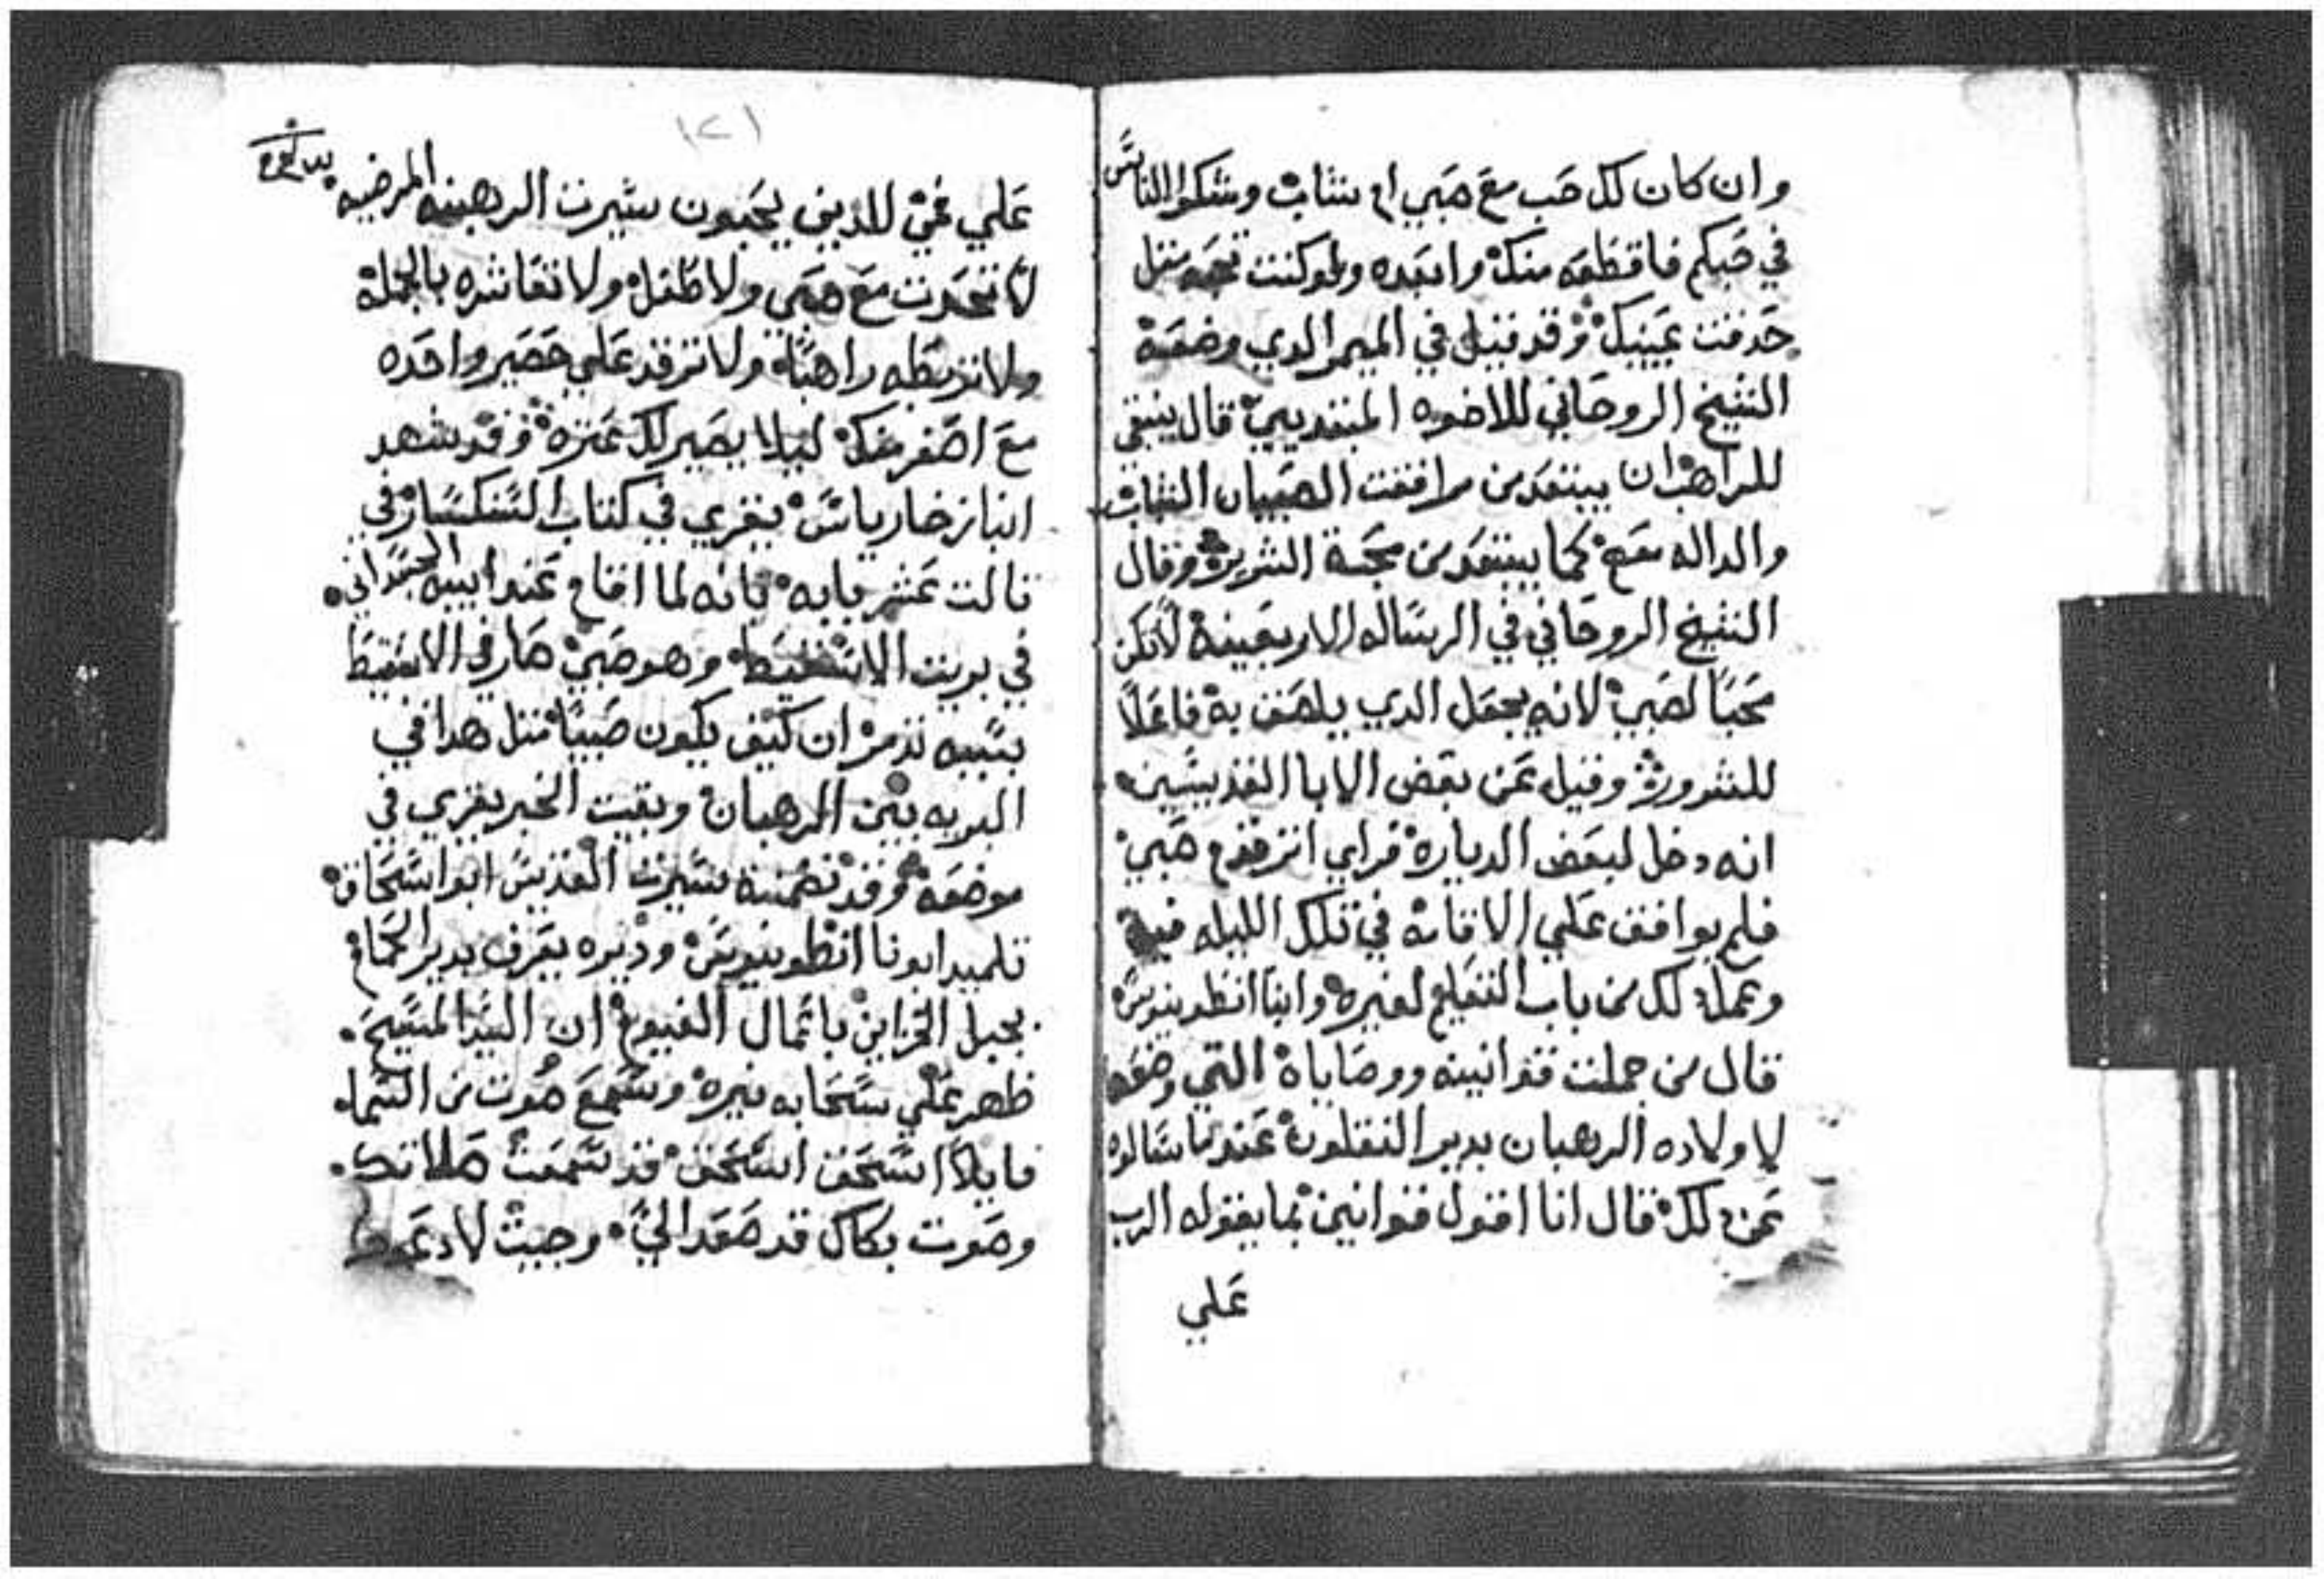 وان كان لك حب مع صبي او شاب وشكوا الناس
في حبكم فاقطعه منك وابعده ولو كنت تحبه مثل
حدقت عينيك وقد قيل في الميمر الدي وضعه
الشيخ الروحاني للاخوه المبتديين قال ينبغي
للراهب ان يبتعد من مرافقت الصبيان الشباب
والداله معهم كما يبتعد من محبة الشريره وقال
الشيخ الروحاني في الرساله الاربعينه لا تكن
محبا لصبي لانه يجعل الدي يلصق به فاعلا
للشرور وقيل عن بعض الابا القديسين
انه دخل لبعض الدياره فراي انز قزم صبي
فلم يوافق علي الاقامه في تلك الليله فيه
وعمل دلك من باب التعليم لغيره وانبا انطونيوس
قال من جملت قوانينه ووصاياه التي وضعها
لاولاده الرهبان بدير النقلون عندما سالوه
عن دلك فقال انا اقول قوانين بما يقوله الرب
علي
١٢١
علي فمي للدين يحبون سيرت الرهبنه المرضيه
لا تتحدت مع صبي ولا طفل ولا تعاشره بالجمله
ولا تربطه راهبا ولا ترقد علي حصير واحده
مع اصغر منك ليلا يصير لك عثره وقد شهد
انبا زخارياس بيقري في كتاب السنكسار في
تالت عشر بابه بانه لما اقام عند ابيه الجسداني
في بريت الاسقيط وهو صبي صار في الاسقيط
بسببه تدمر ان كيف يكون صبيا مثل هدا في
البريه بين الرهبان وبقيت الخبر يقري في
موضعه وقد تضمنة سيرت القديس ابو اسحاق
تلميد ابونا انطونيوس وديره يعرف بدير الحمام
بجبل الخزاين باعمال الفيوم ان السيد المسيح
ظهر علي سحابه نيره وسمع صوت من السما
قايلا اسحق اسحق قد سمعت صلاتك
وصوت بكاك قد صعد الي وجيت لادعوك